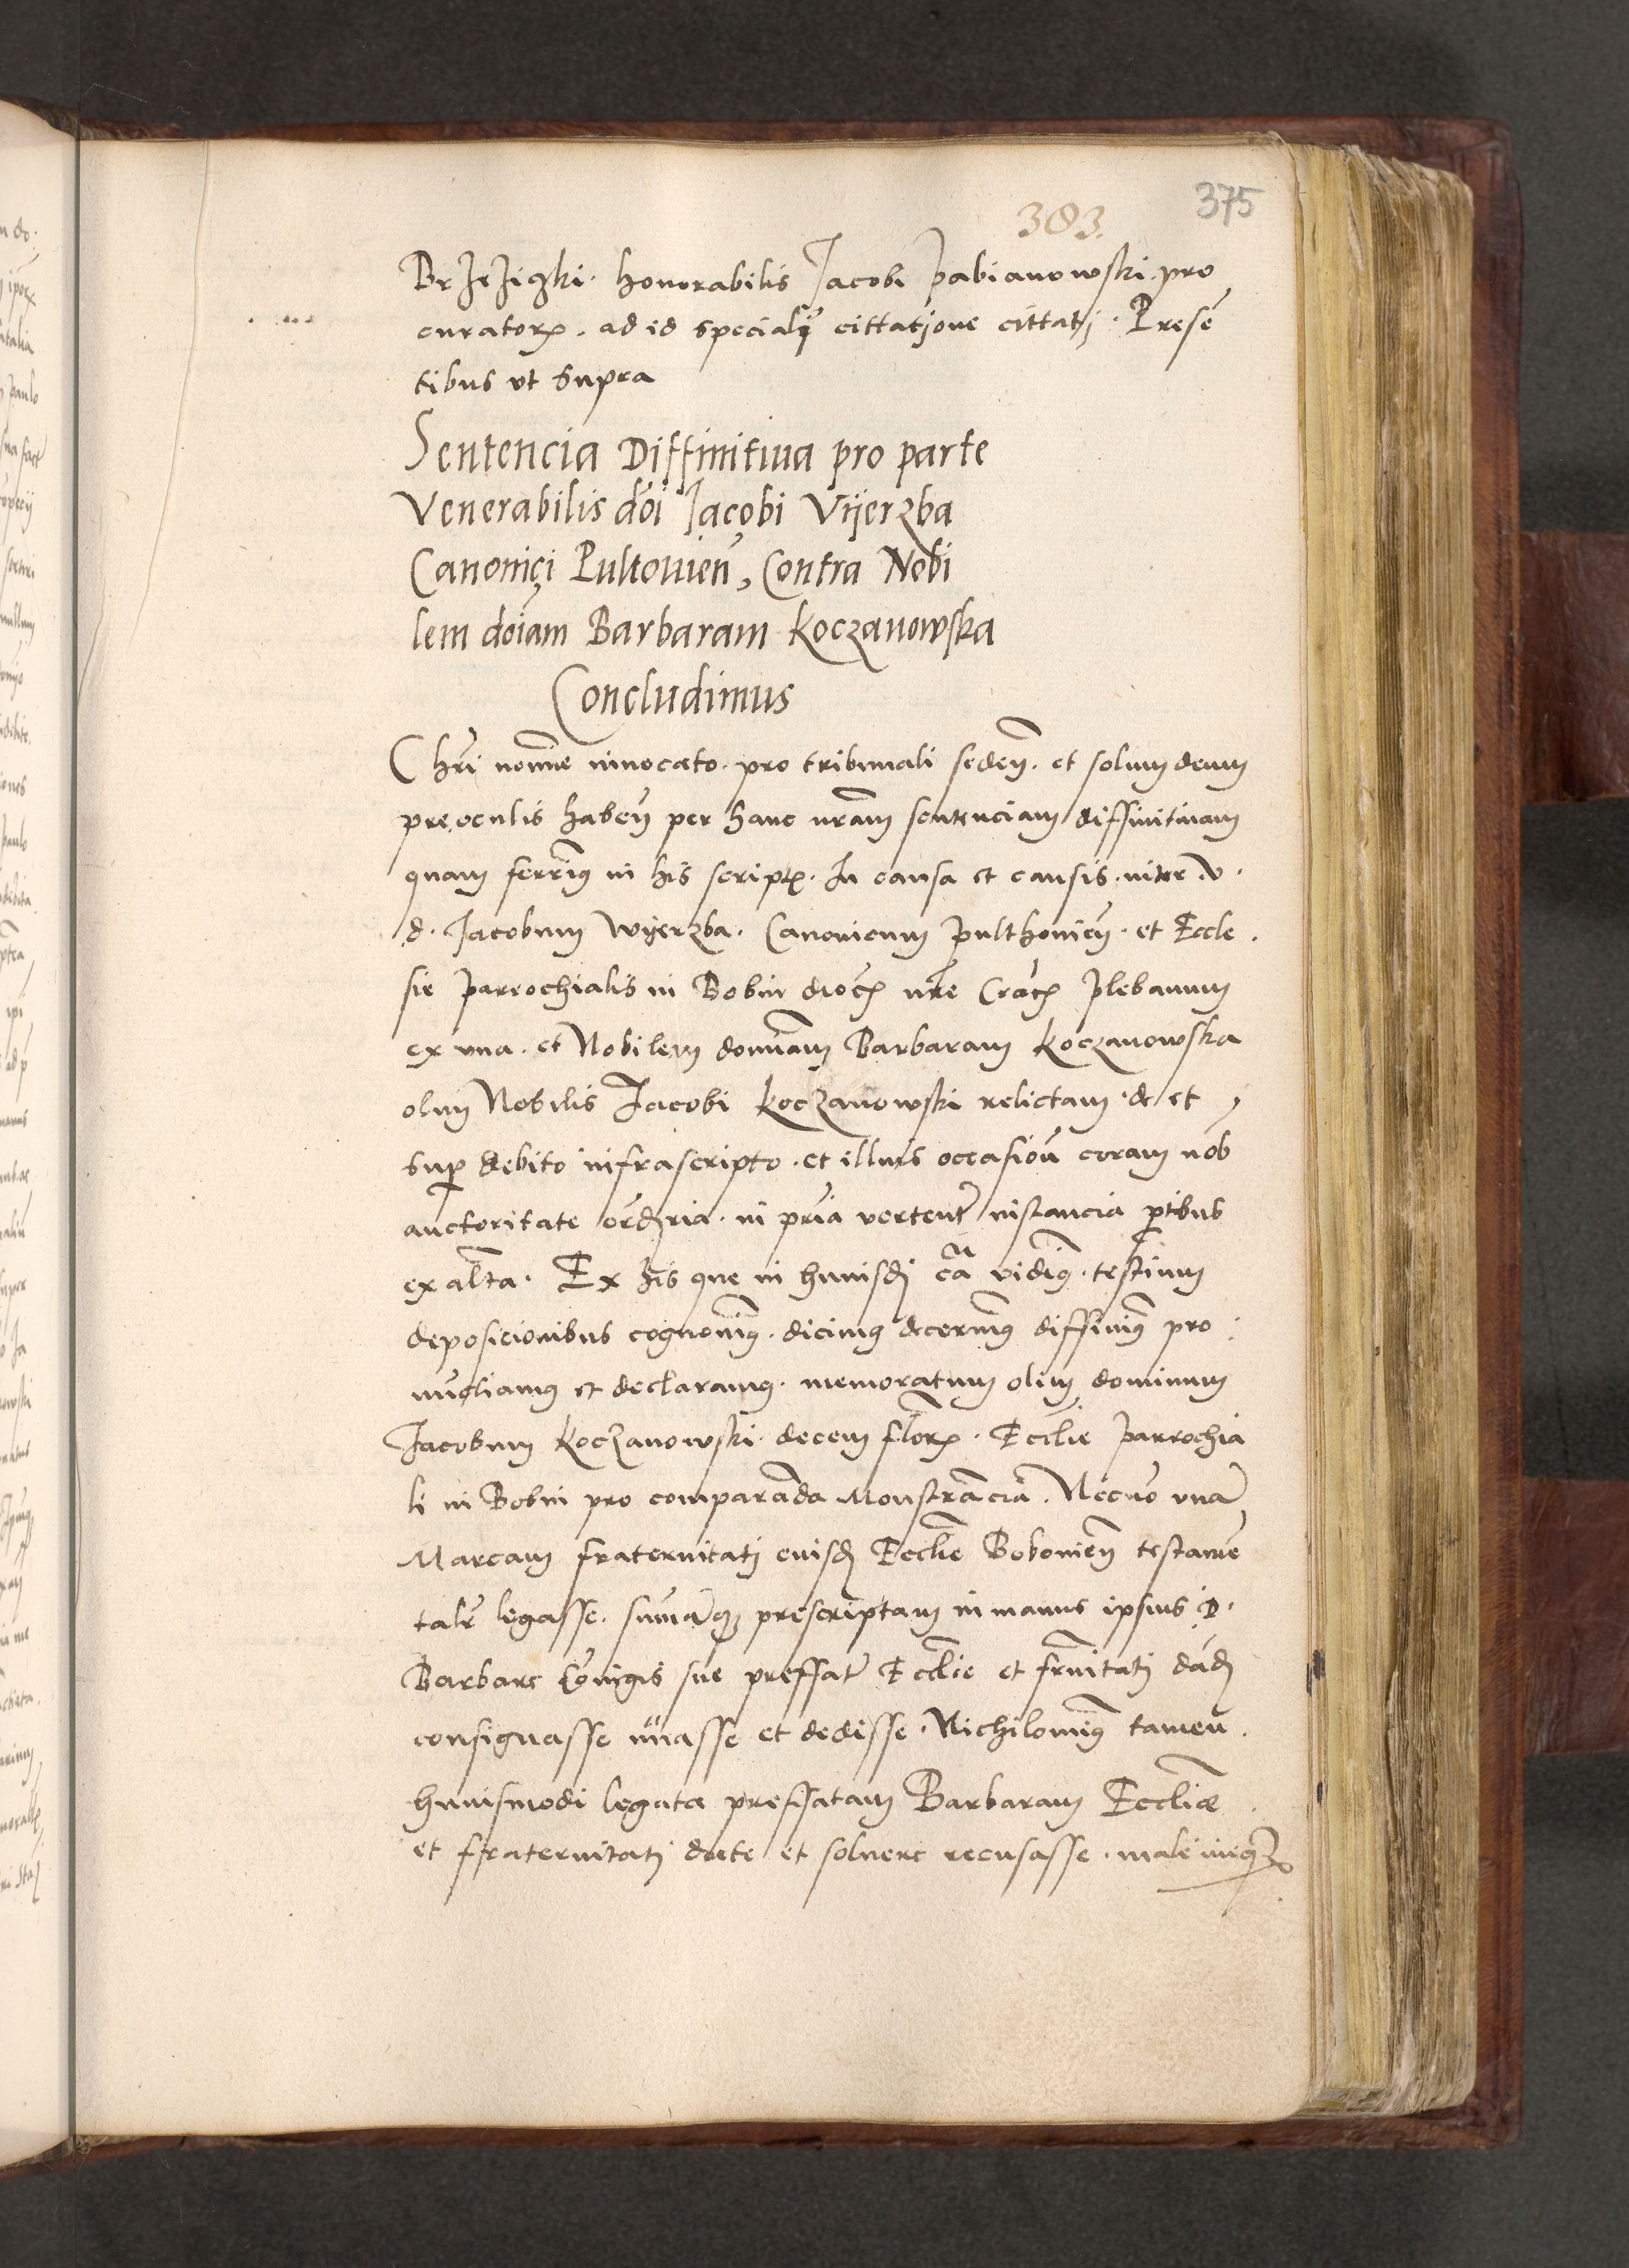 375
383.
BrzezjczKi. honorabilis Jacobi Pabianowski. pro
curatorꝝ. ad id specialꝭ cittatjone cittatj. Presē
tibus vt supra
Sentencia Diffinitiua pro parte
Venerabilis dōi Jacobi Vijerzba
Canonici Pultouien̄, Contra Nobi
lem doīam Barbaram Koczanowska
Concludimus
Chrī nomīe inuocato. pro tribunali seden̄. et solum deum
pre oculis haben̄ per hanc nrām sentenciam diffinitiuam
quam ferim̄ꝰ in his scriptꝭ. In causa et causis. inter v.
d. Jacobum Wijerzba. Canonicum Pulthonien̄. et Eccle
sie Parrochialis in Bobin diocꝭ nrē Cracꝭ Plebanum
ex vna. et Nobilem domīam Barbaram Koczanowska
olim Nobilis Jacobi Koczanowski relictam. de et
sup̱ debito infrascripto. et illius occasiou̅ coram nob̄
auctoritate ord̄ria. in prīa verten̄t instancia p̱tibus
ex alt̄a. Ex his que in huiusd̄j cā vidim̄ꝰ. testium
deposicionibus cognouim̄ꝰ. dicimꝰ decernim̄ꝰ diffinim̄ꝰ pro
nūctiamꝰ et declaramꝰ. memoratum olim dominum
Jacobum Koczanowski. decem florꝭ. Ecclīe Parrochia
li in Bobin pro comparan̄da Monstran̄ciā. Necno̅ vnā
Marcam fraternitatj euisd̄ Ecclīe Bobonien̄ testamē
talr̄ legasse. summāqꝫ prescriptam in manus ipsius D.
Barbare Cōniugis sue preffatꝭ Ecclīe et frnītatj dād̄
consignasse nūasse et dedisse. Nichilomin̄ꝰ tamen
huiusmodi legata preffatam Barbaram Eccliæ
et ffraternitatj dare et soluere recusasse. male iniqꝫ